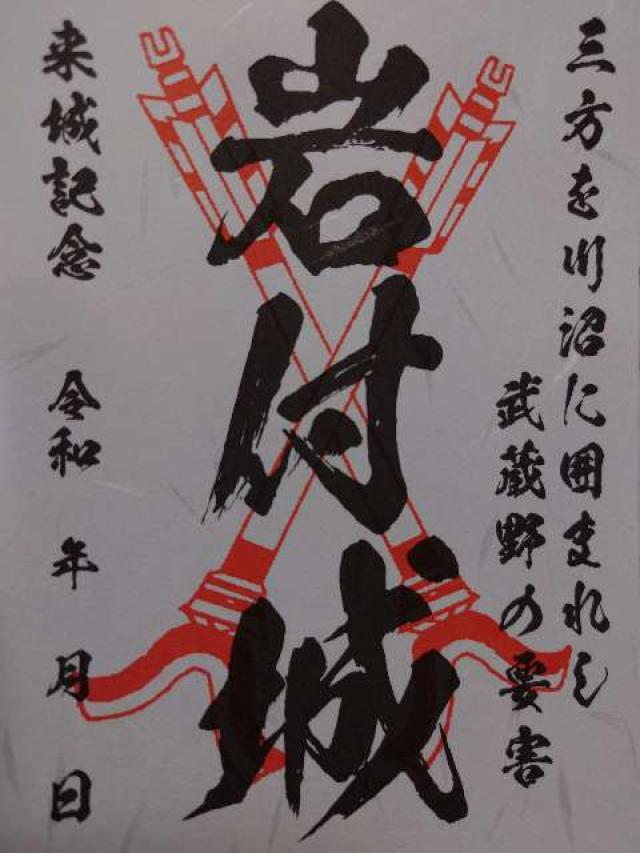 三方を川沼に囲まれし
武蔵野の要害
岩付城
来城記念　令和　年　月　日